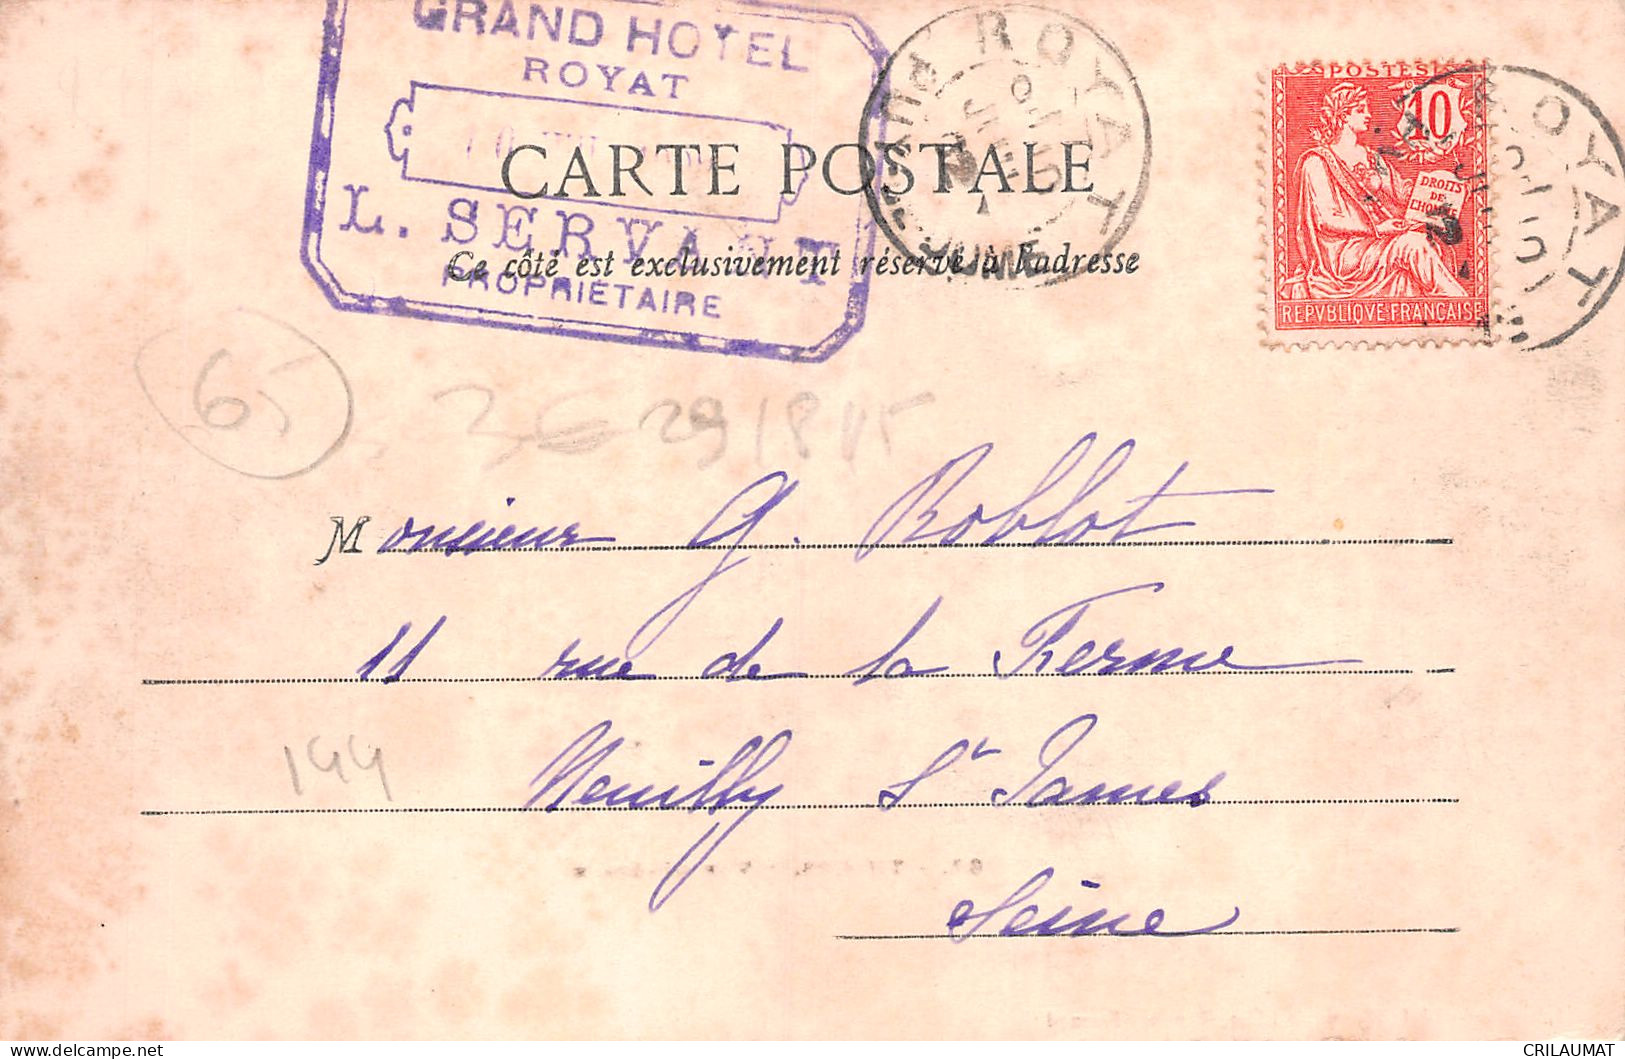 GRAND HOTEL
ROYAT
L. SERVANT
PROPRIÉTAIRE
ROYAT
CARTE POSTALE
Ce côté est exclusivement réservé à l'adresse
POSTES
10
DROITS
DE
L'HOMME
REPVBLIQVE FRANÇAISE
ROYAT
65
3€ 29/8 V15
Monsieur G. Roblot
11 rue de la Ferme
Neuilly St James
144
Seine
CRILAUMAT